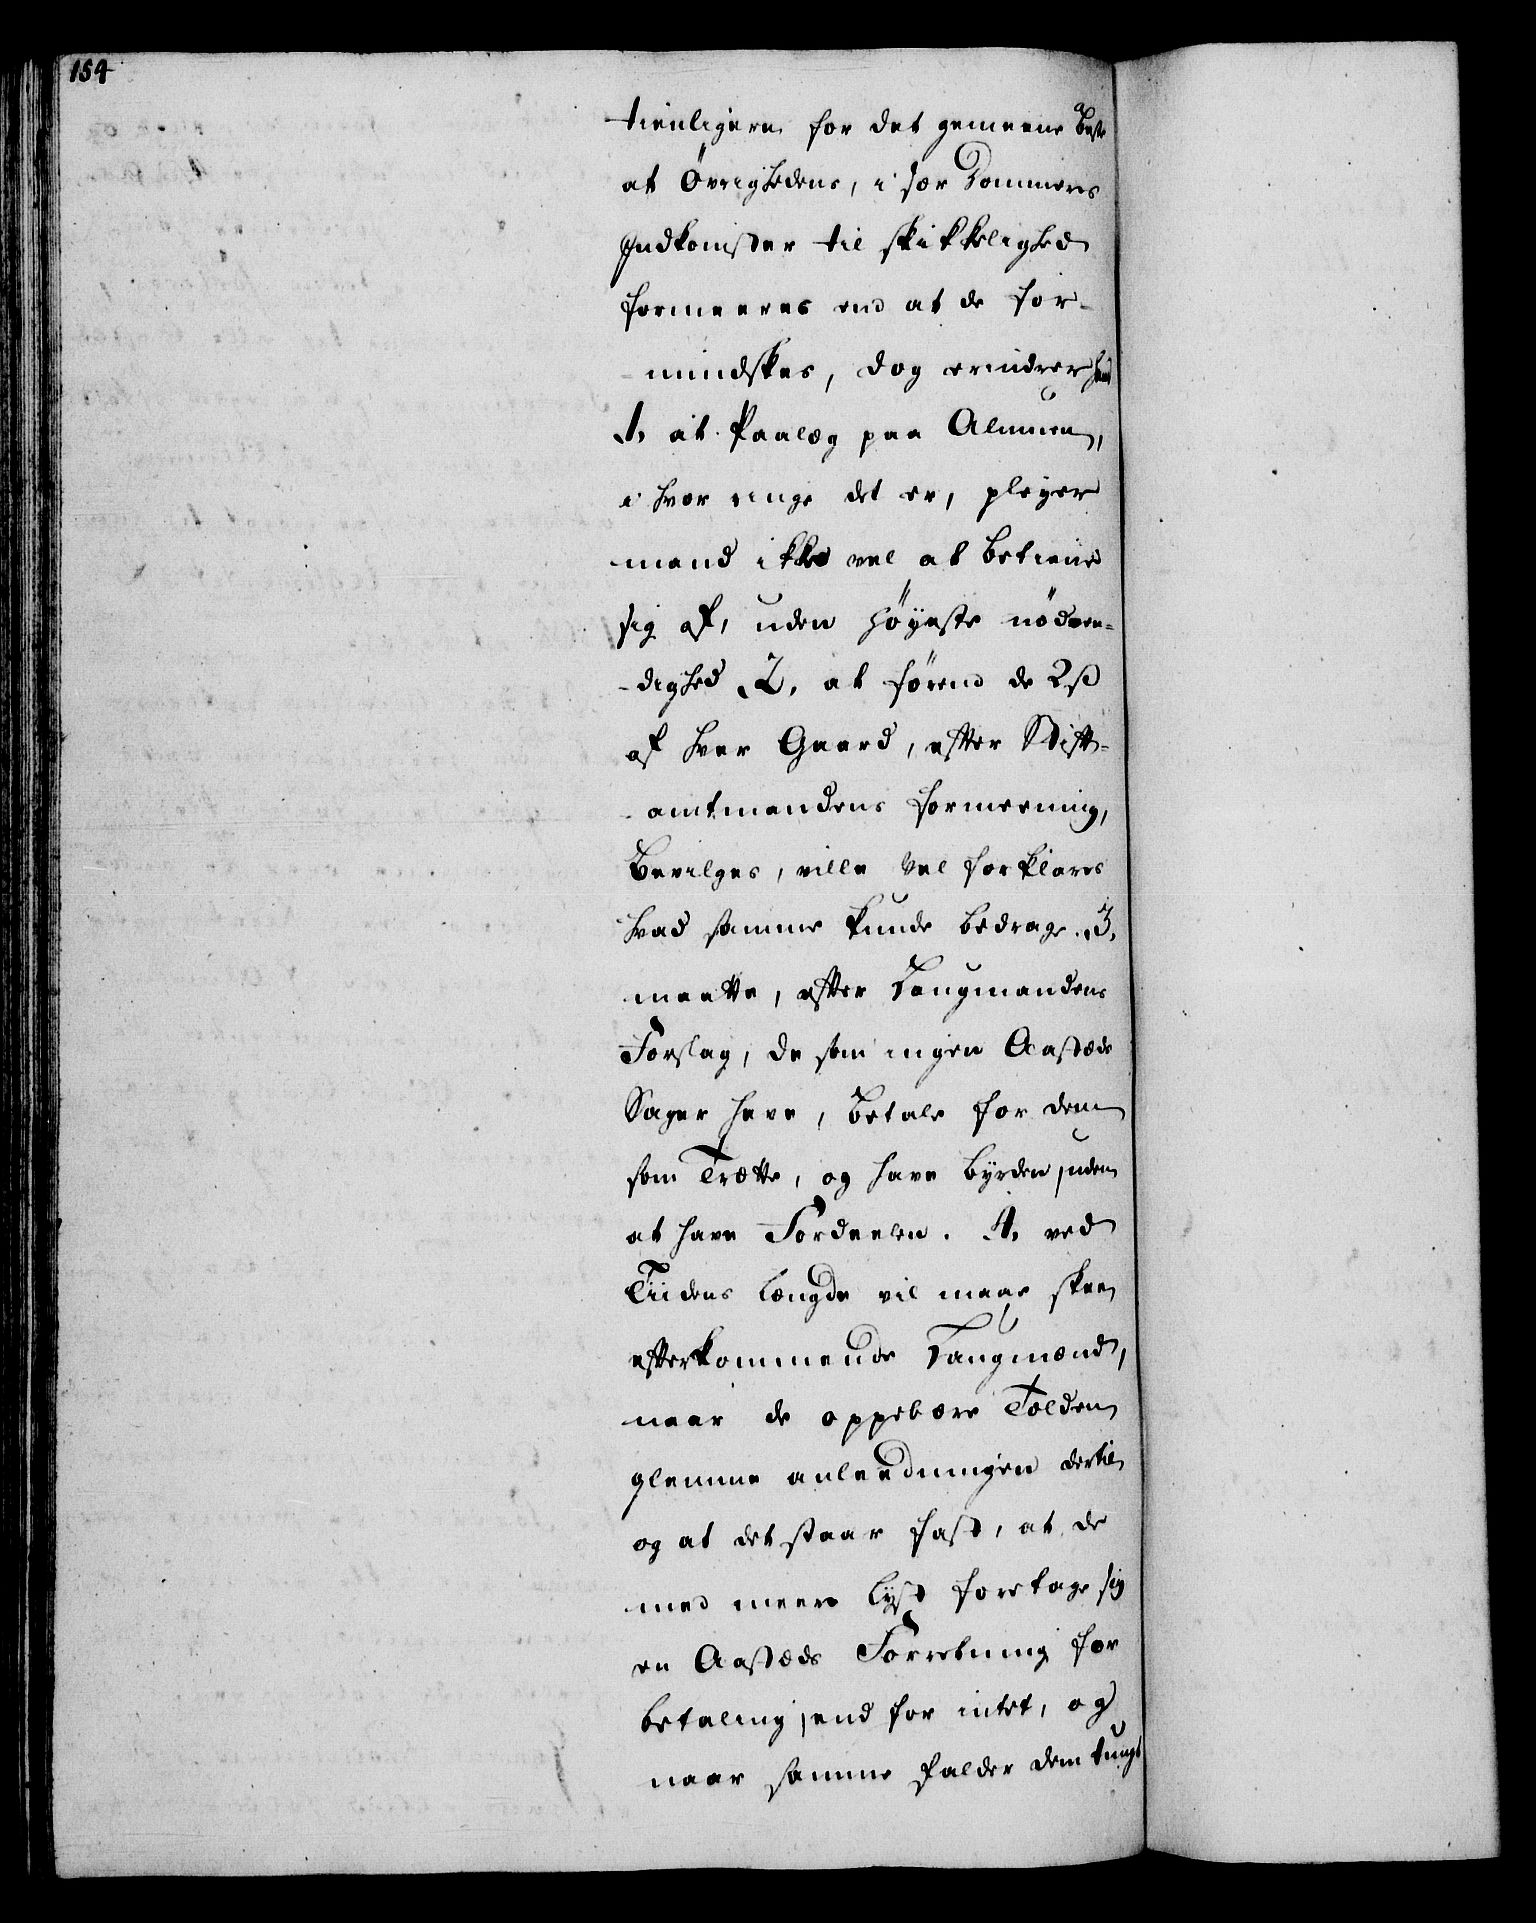 154
tienligere for det gemeene Beste
at Övrighedens, i sær Dommeres
Indkomster til skikkelighed
formeeres end at de for-
-mindskes, dog erindrer hand
1, at Paalæg paa Almuen,
i hvor ringe det er, pleyer
mand ikke vel at betiene
sig af, uden höyeste nödven-
-dighed 2, at förend de 2 ß
af hver Gaard, efter Stift-
-amtmandens formeening,
Bevilges, ville vel forklares
hvad samme kunde bedrage. 3,
maatte, efter Laugmandens
Forslag, de som ingen Aastæds
Sager have, betale for dem
som Trætte, og have byrden, uden
at have Fordeelen. 4, ved
Tiidens Længde vil maae skee
efterkommende Laugmænd,
naar de oppebære Tolden
glemme anleedningen dertil
og at det staar fast, at de
med meere Lyst foretage sig
en Aastæds Forretning for
betaling, end for intet, og
naar samme falder dem tungt